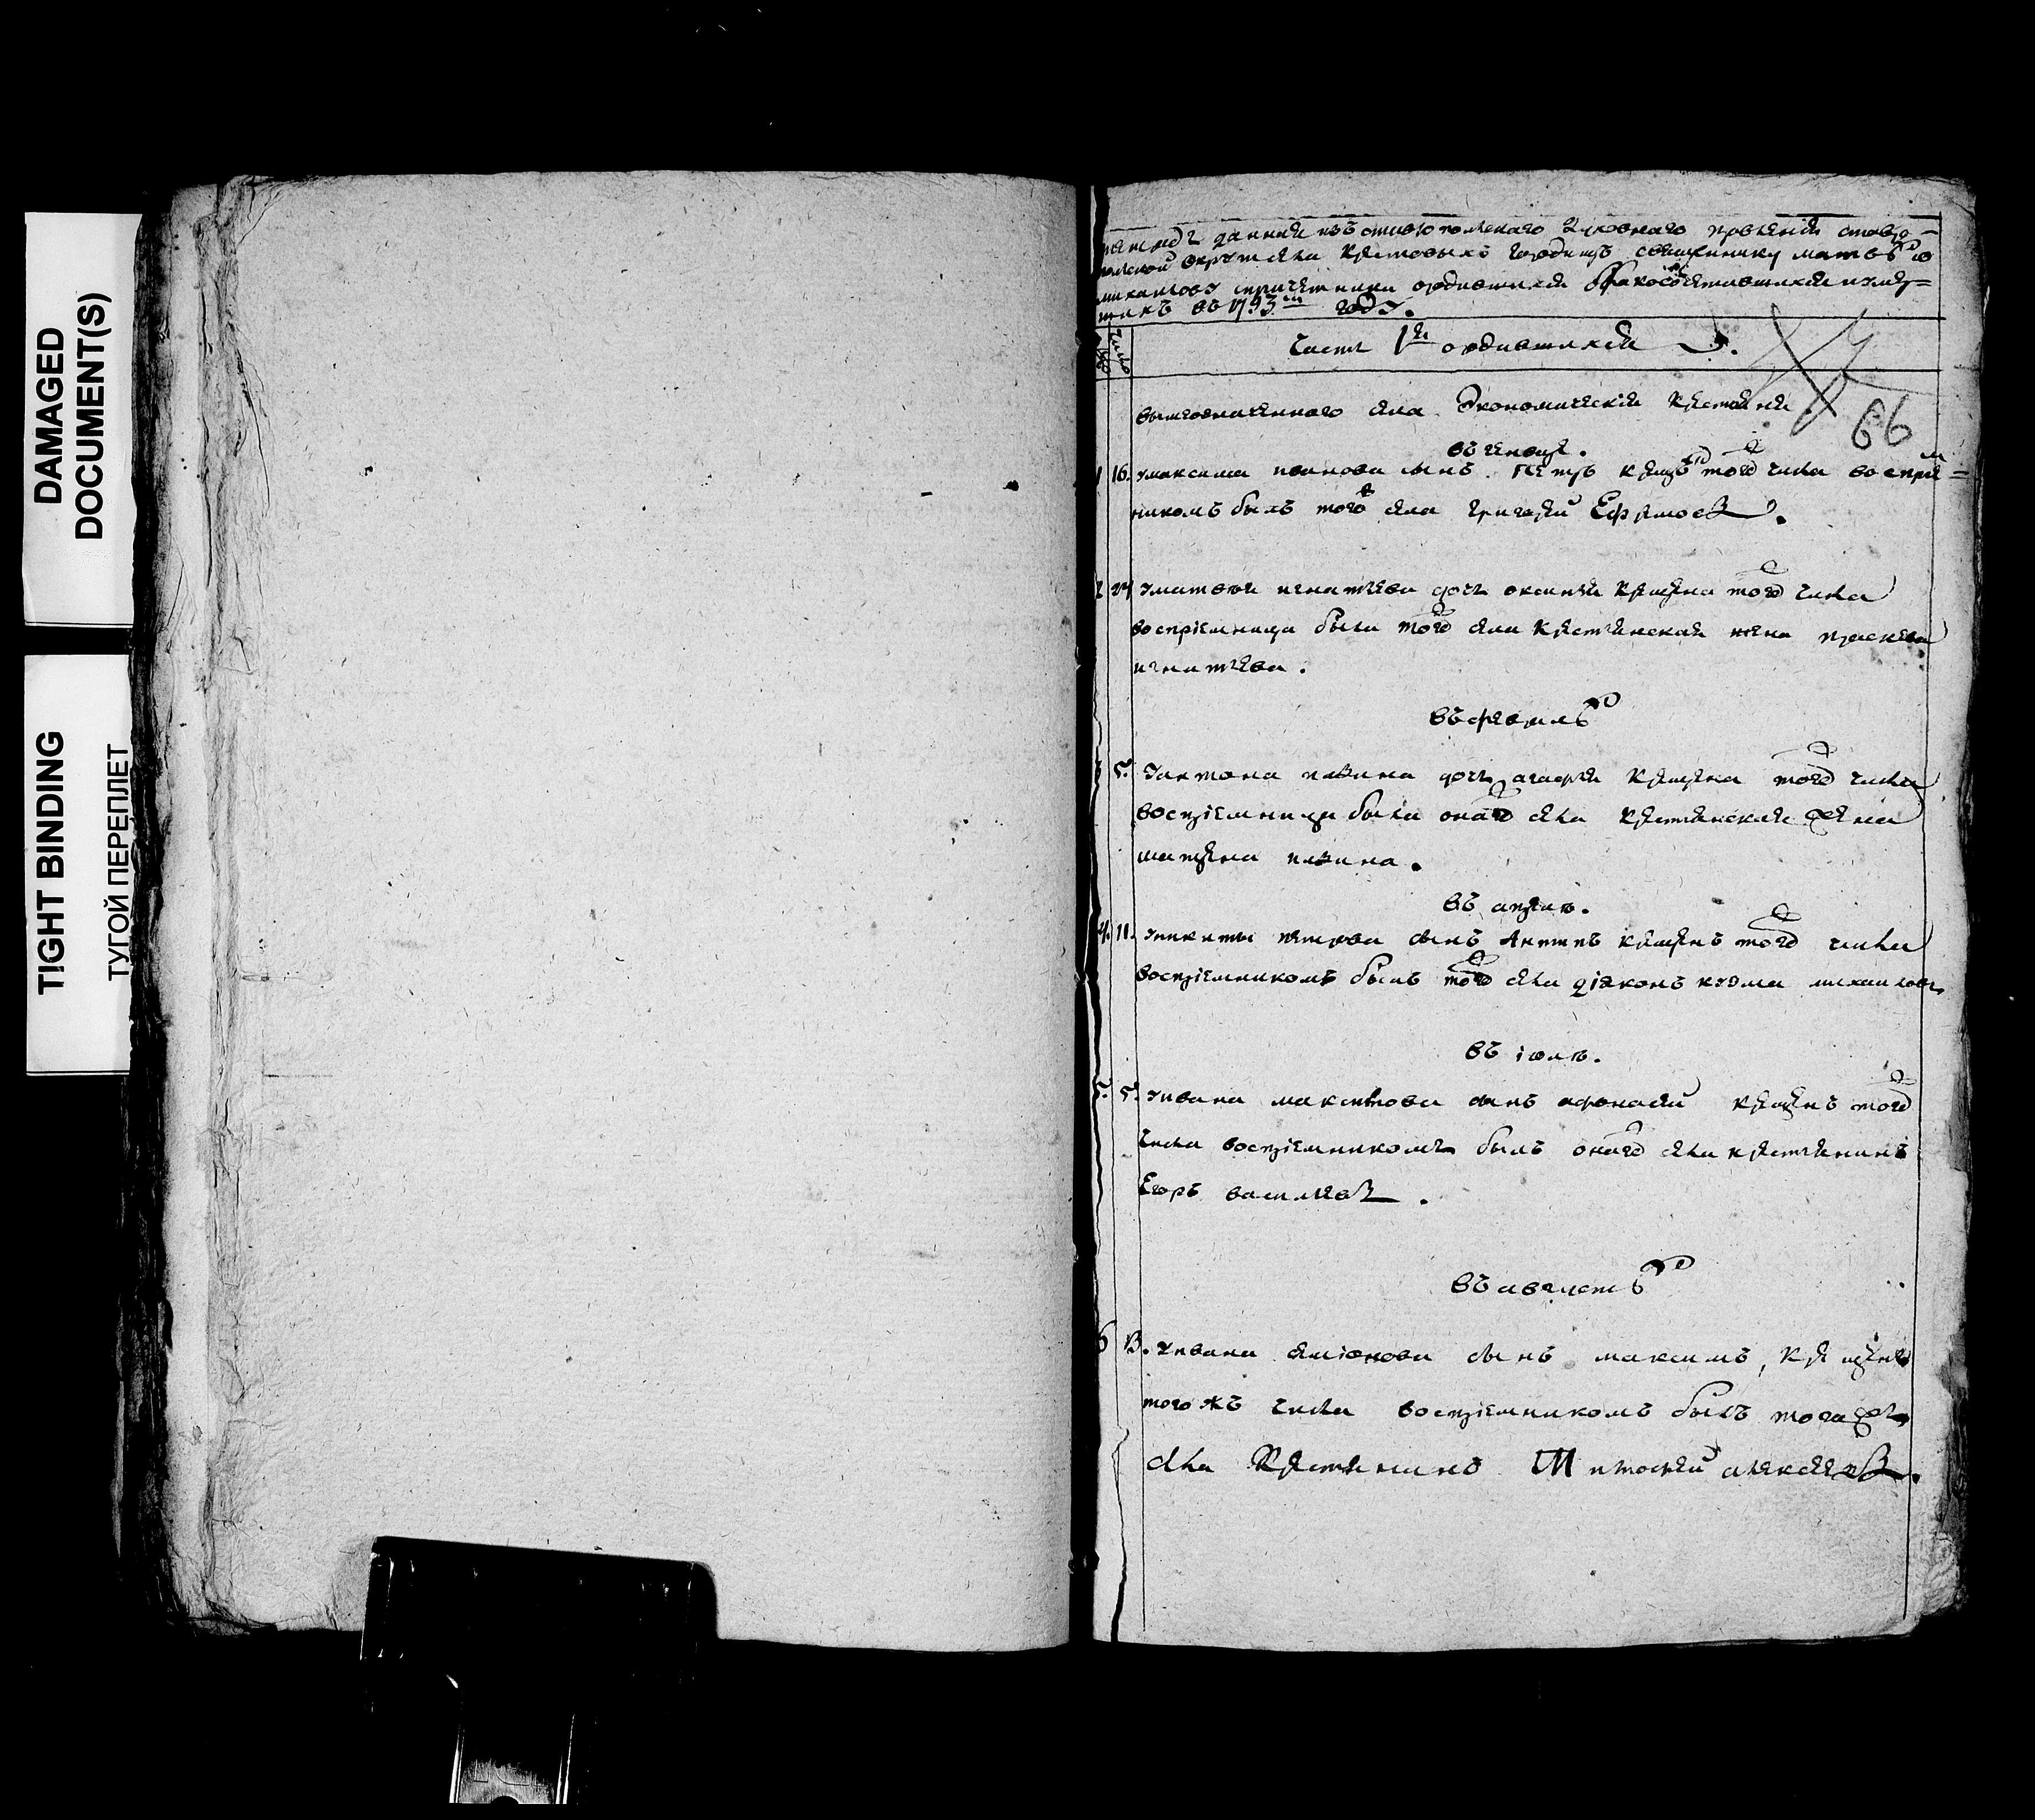 DAMAGED
DOCUMENT(S)
TIGHT BINDING
ТУГОЙ ПЕРЕПЛЕТ
данная изъ духовнаго правления ставро-
села крестовыхъ городищъ священнику матвѣю
михаилову
въ 1793м году.
число
часть 1я ородившихся
66
вышеозначенного села Экономическия крестьяня
въ генваре.
1 16. умаксима иванова сынъ петръ крещенъ того числа восприем=
никомъ былъ того села григорей Ефремовъ.
2 27 уматвея игнатьева дочь оксинья крещена того числа
восприемница была того села крестьянская жена прасковья
игнатьева.
въ феврале
3 5. уантона дочь агафья крещена того числа
восприемница была онаго села крестьянская жена
матрена.
въ апреле.
4. 11. уникиты петрова сынъ Антипъ крещенъ того числа
восприемникомъ былъ того села діаконъ козма михаиловъ
въ іюле.
5. 5. уивана максимова сынъ афонасей крещенъ того
числа восприемникомъ былъ онаго села крестьянинъ
Егоръ васильевъ.
въ августѣ
6 13. уивана семіонова сынъ максимъ, крещенъ
того жъ числа восприемникомъ былъ тогожъ
села крестьянинъ Тимофей алексеевъ.